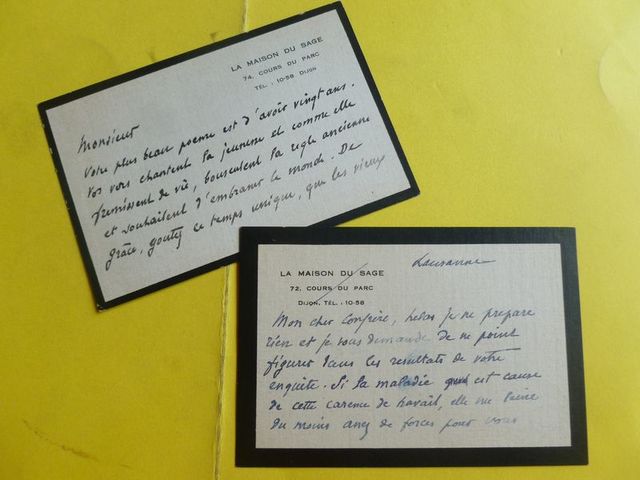 LA MAISON DU SAGE
74, COURS DU PARC
TÉL. : 10-58 DIJON
Monsieur
Votre plus beau poeme est d'avoir vingt ans.
Vos vers chantent la jeunesse et comme elle
fremissent de vie, bousculent la regle ancienne
et souhaitent d'embraser le monde. De
grâce, goutez ce temps unique, que les vieux
LA MAISON DU SAGE
72, COURS DU PARC
DIJON. TÉL. : 10-58
Lausanne
Mon cher Confrère, helas je ne prepare
rien et je vous demande de ne point
figurer dans les resultats de votre
enquête. Si la maladie est cause
de cette carence de travail, elle me laisse
du moins assez de forces pour vous